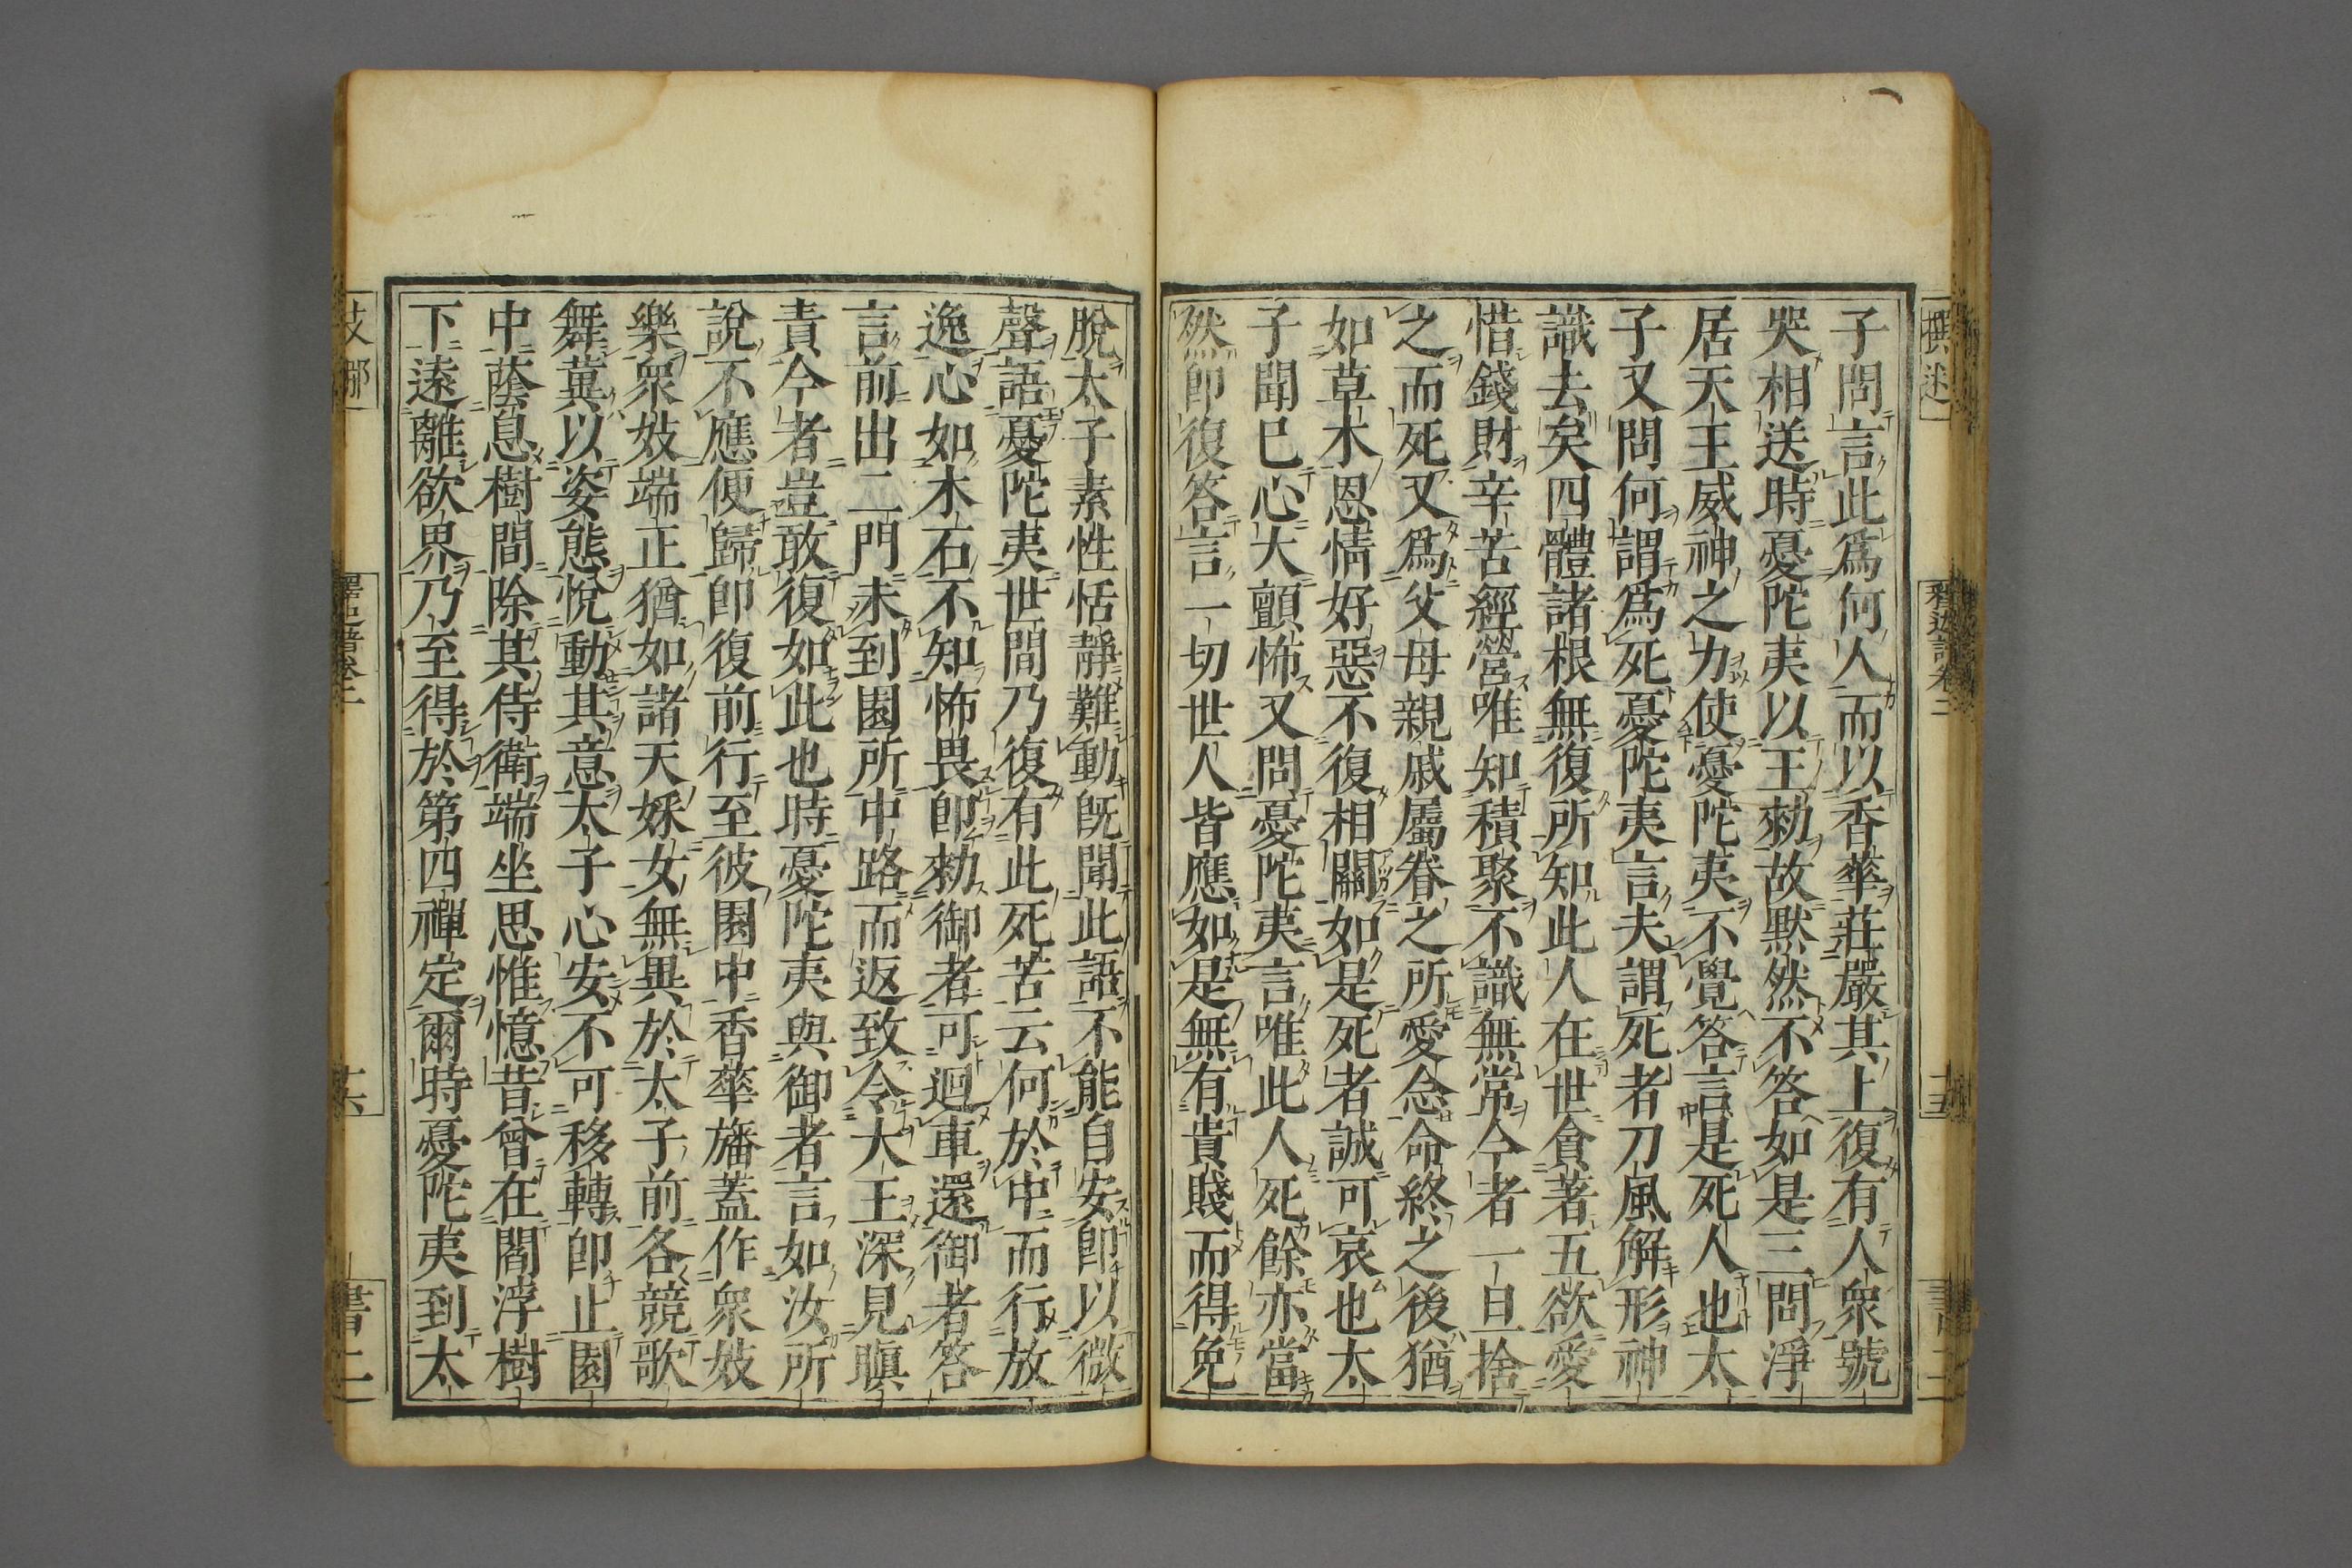 子問言此爲何人而以香華莊嚴其上復有人衆號
哭相送時憂陀夷以王勑故默然不答如是三問淨
居天王威神之力使憂陀夷不覺答言是死人也太
子又問何謂爲死憂陀夷言夫謂死者刀風解形神
識去矣四體諸根無復所知此人在世貪著五欲愛
惜錢財辛苦經營唯知積聚不識無常今者一旦捨
之而死又爲父母親戚屬眷之所愛念命終之後猶
如草木恩情好惡不復相關如是死者誠可哀也太
子聞已心大顫怖又問憂陀夷言唯此人死餘亦當
然卽復答言一切世人皆應如是無有貴賤而得免
脫太子素性恬靜難動旣聞此語不能自安卽以微
聲語憂陀夷世間乃復有此死苦云何於中而行放
逸心如木石不知怖畏卽勑御者可迴車還御者答
言前出二門未到園所中路而返致令大王深見瞋
責今者豈敢復如此也時憂陀夷與御者言如汝所
說不應便歸卽復前行至彼園中香華旛蓋作衆妓
樂衆妓端正猶如諸天婇女無異於太子前各競歌
舞冀以姿態悅動其意太子心安不可移轉卽止園
中蔭息樹間除其侍衛端坐思惟憶昔曾在閻浮樹
下遠離欲界乃至得於第四禪定爾時憂陀夷到太